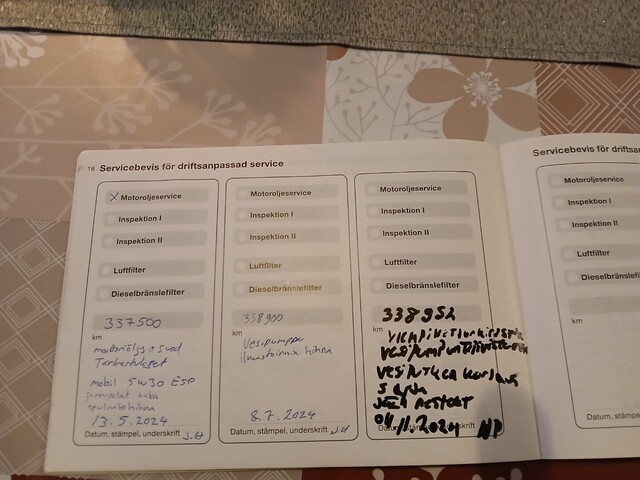 18 Servicebevis för driftsanpassad service
Motoroljeservice
Inspektion I
Inspektion II
Luftfilter
Dieselbränslefilter
337500
km
moottoriöljy + suod
Tarkastukset
mobil 5W30 ESP
13.5.2024
Datum, stämpel, underskrift J.H
Motoroljeservice
Inspektion I
Inspektion II
Luftfilter
Dieselbränslefilter
338900
km
Vesipumppu
ilmastoinnin hihna
8.7.2024
Datum, stämpel, underskrift J.H
Motoroljeservice
Inspektion I
Inspektion II
Luftfilter
Dieselbränslefilter
338952
km
vesiputken korjaus
04.11.2024 NP
Datum, stämpel, underskrift
Servicebevis för driftsan
Motoroljeservice
Inspektion I
Inspektion II
Luftfilter
Dieselbränslefilte
km
Datum, stämp